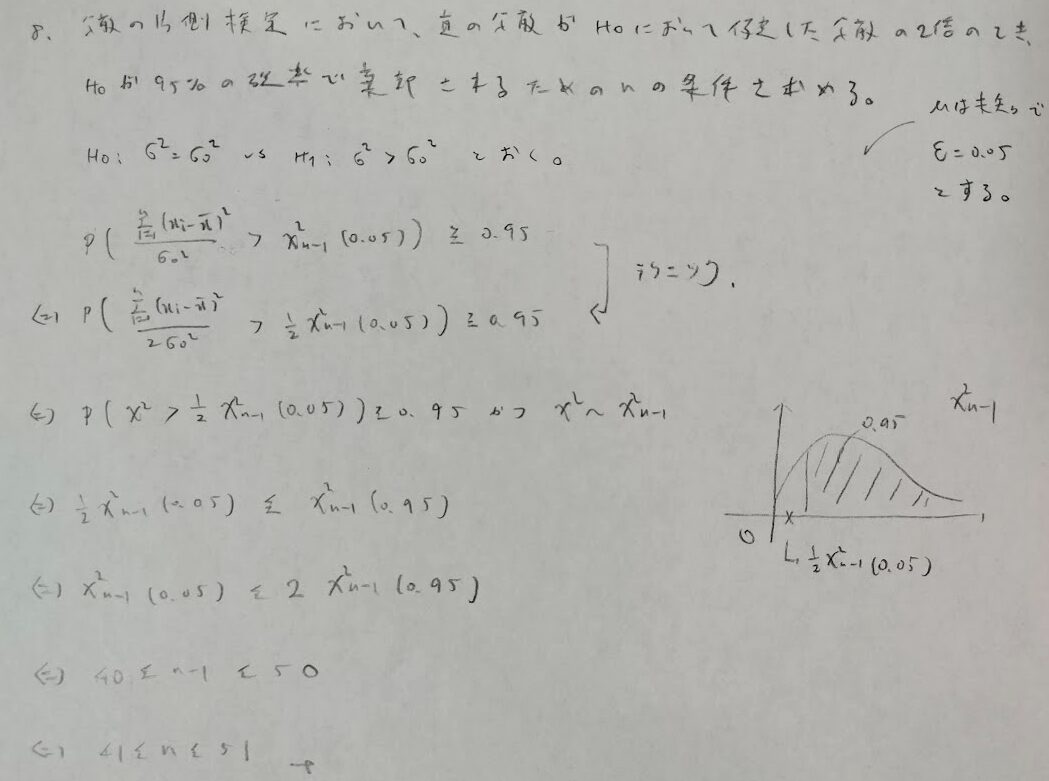 8. 分散の片側検定において、真の分散がH₀において仮定した分散の2倍のとき、
H₀が95%の確率で棄却されるためのnの条件を求める。
μは未知で
ε=0.05
とする。
H₀: σ²=σ₀² vs H₁: σ²>σ₀² とおく。
P( Σᵢ₌₁ⁿ(xᵢ-x̄)² / σ₀² > χ²ₙ₋₁(0.05) ) ≧ 0.95
⇔ P( Σᵢ₌₁ⁿ(xᵢ-x̄)² / 2σ₀² > 1/2 χ²ₙ₋₁(0.05) ) ≧ 0.95
⇔ P( χ² > 1/2 χ²ₙ₋₁(0.05) ) ≧ 0.95 かつ χ² ~ χ²ₙ₋₁
⇔ 1/2 χ²ₙ₋₁(0.05) ≦ χ²ₙ₋₁(0.95)
⇔ χ²ₙ₋₁(0.05) ≦ 2 χ²ₙ₋₁(0.95)
⇔ 40 ≦ n-1 ≦ 50
⇔ 41 ≦ n ≦ 51
χ²ₙ₋₁
0.95
0
1/2 χ²ₙ₋₁(0.05)